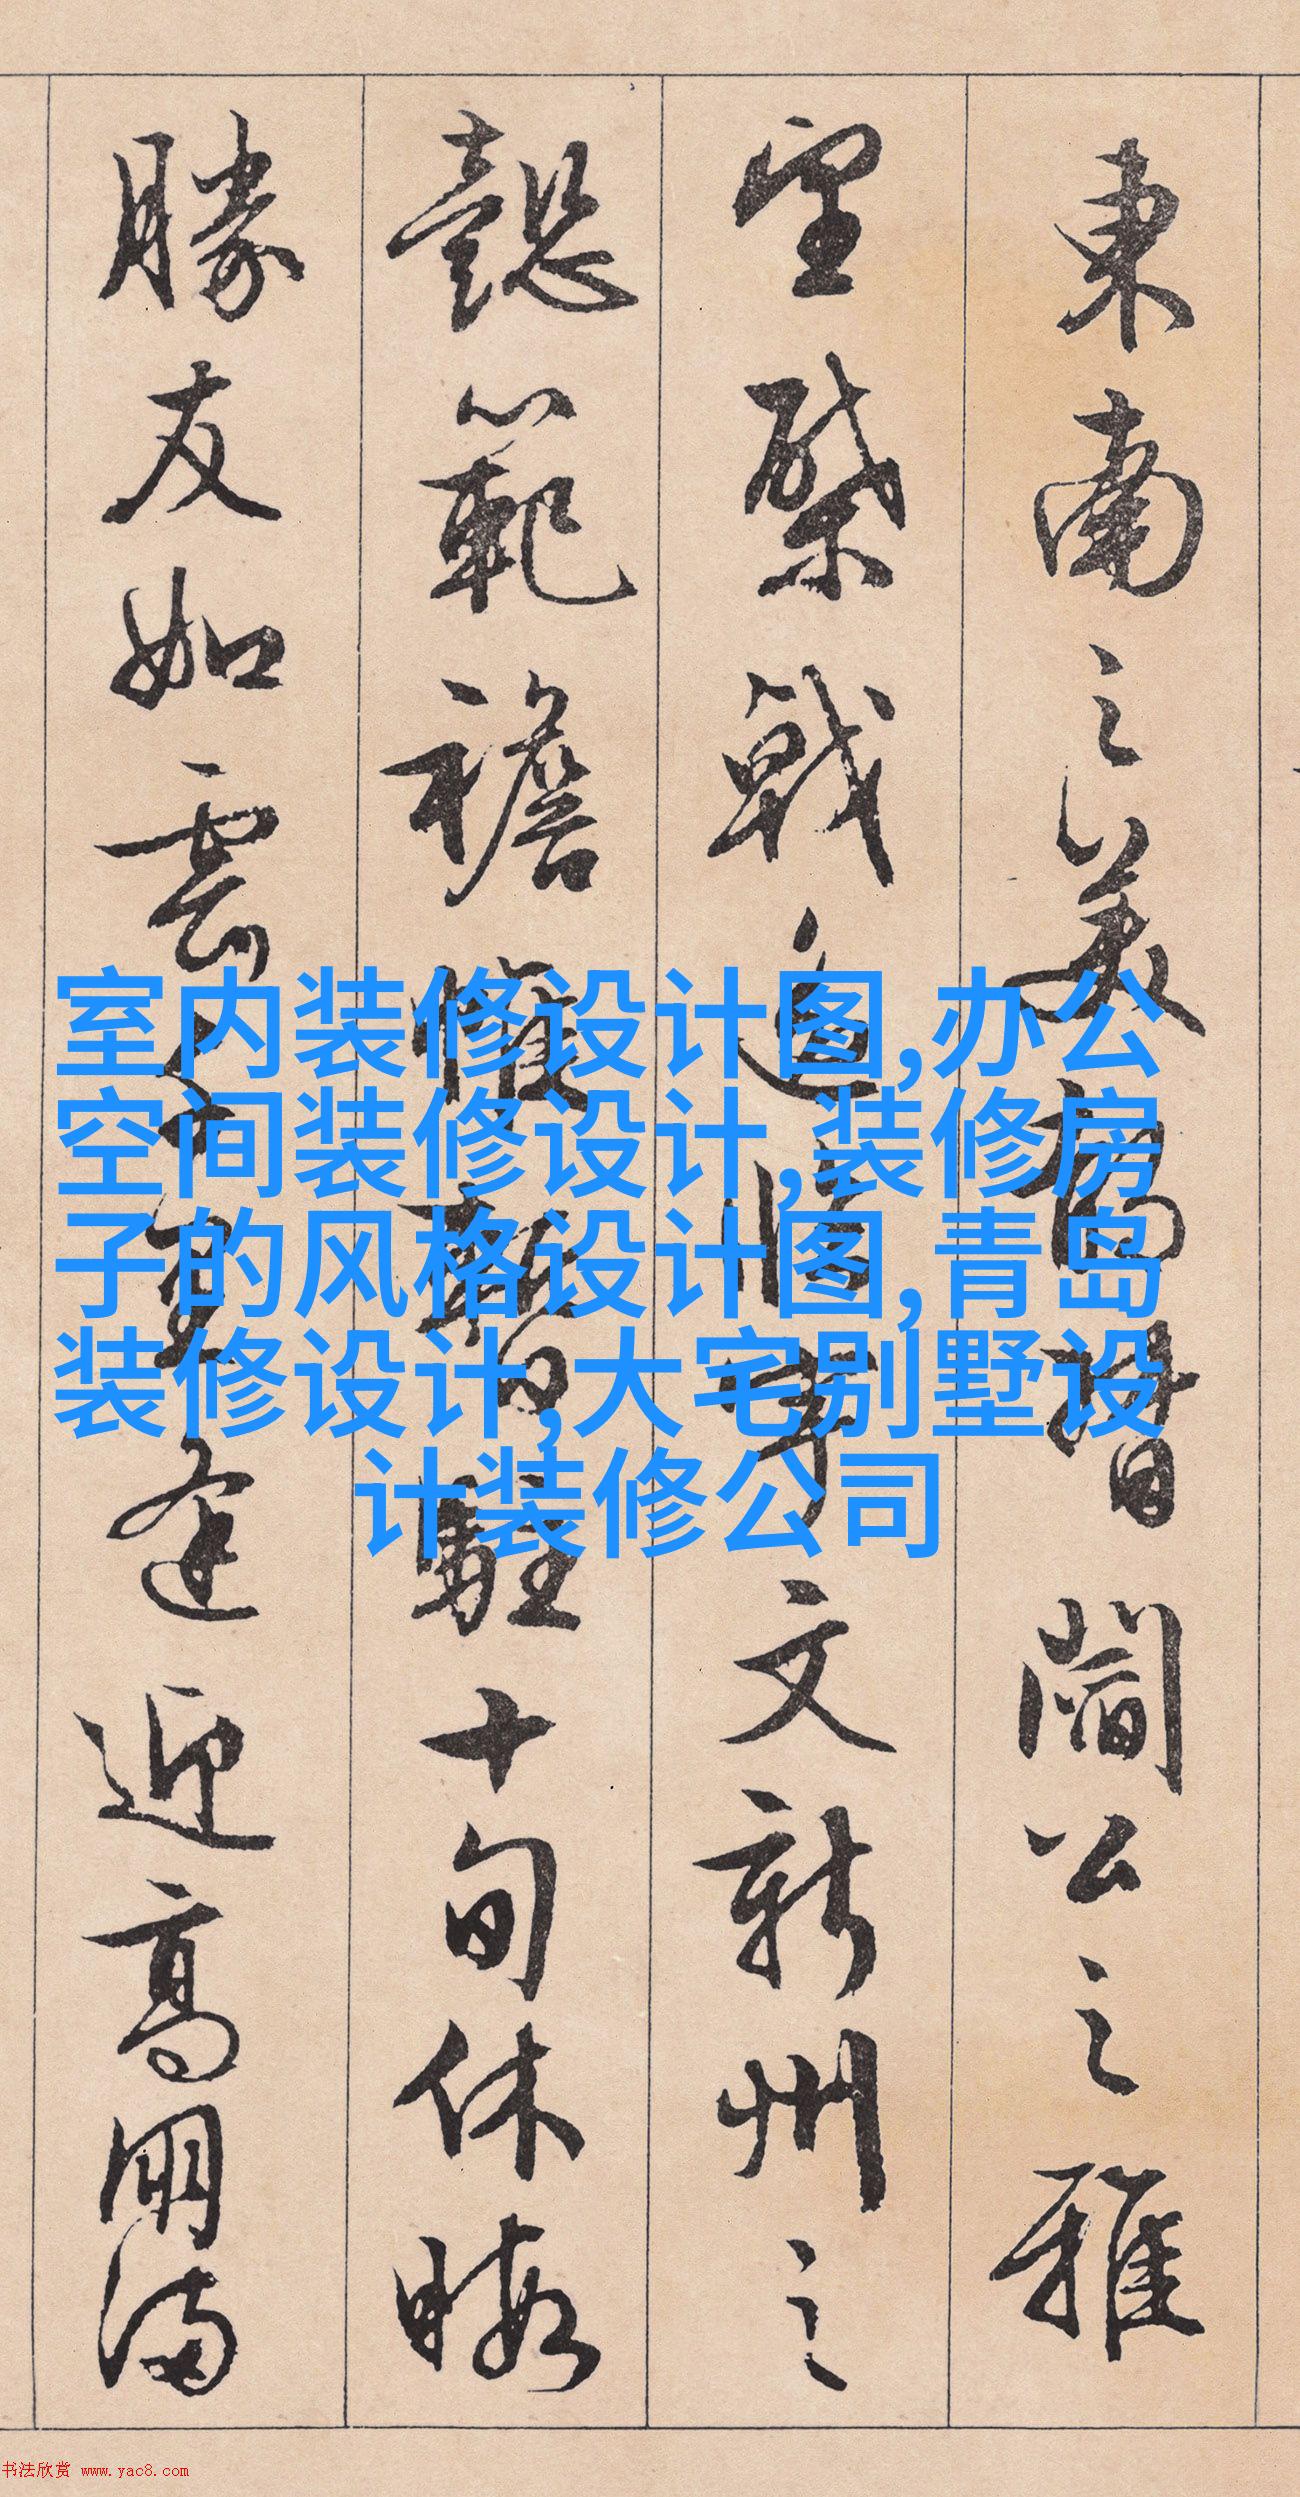 東南之美都督閻公之雅
望棨戟遥臨宇文新州之
懿範襜帷暫駐十旬休暇
勝友如雲千里逢迎高朋滿
室内装修设计图,办公
空间装修设计,装修房
子的风格设计图,青岛
装修设计,大宅别墅设
计装修公司
书法欣赏 www.yac8.com